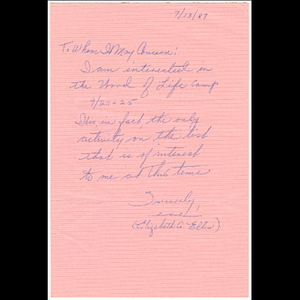 7/13/87
To Whom It May Concern:
I am interested in
the Word of Life Camp
7/20-25
This in fact the only
activity on the list
that is of interest
to me at this time
Sincerely,
(Elizabeth A. Ellis)